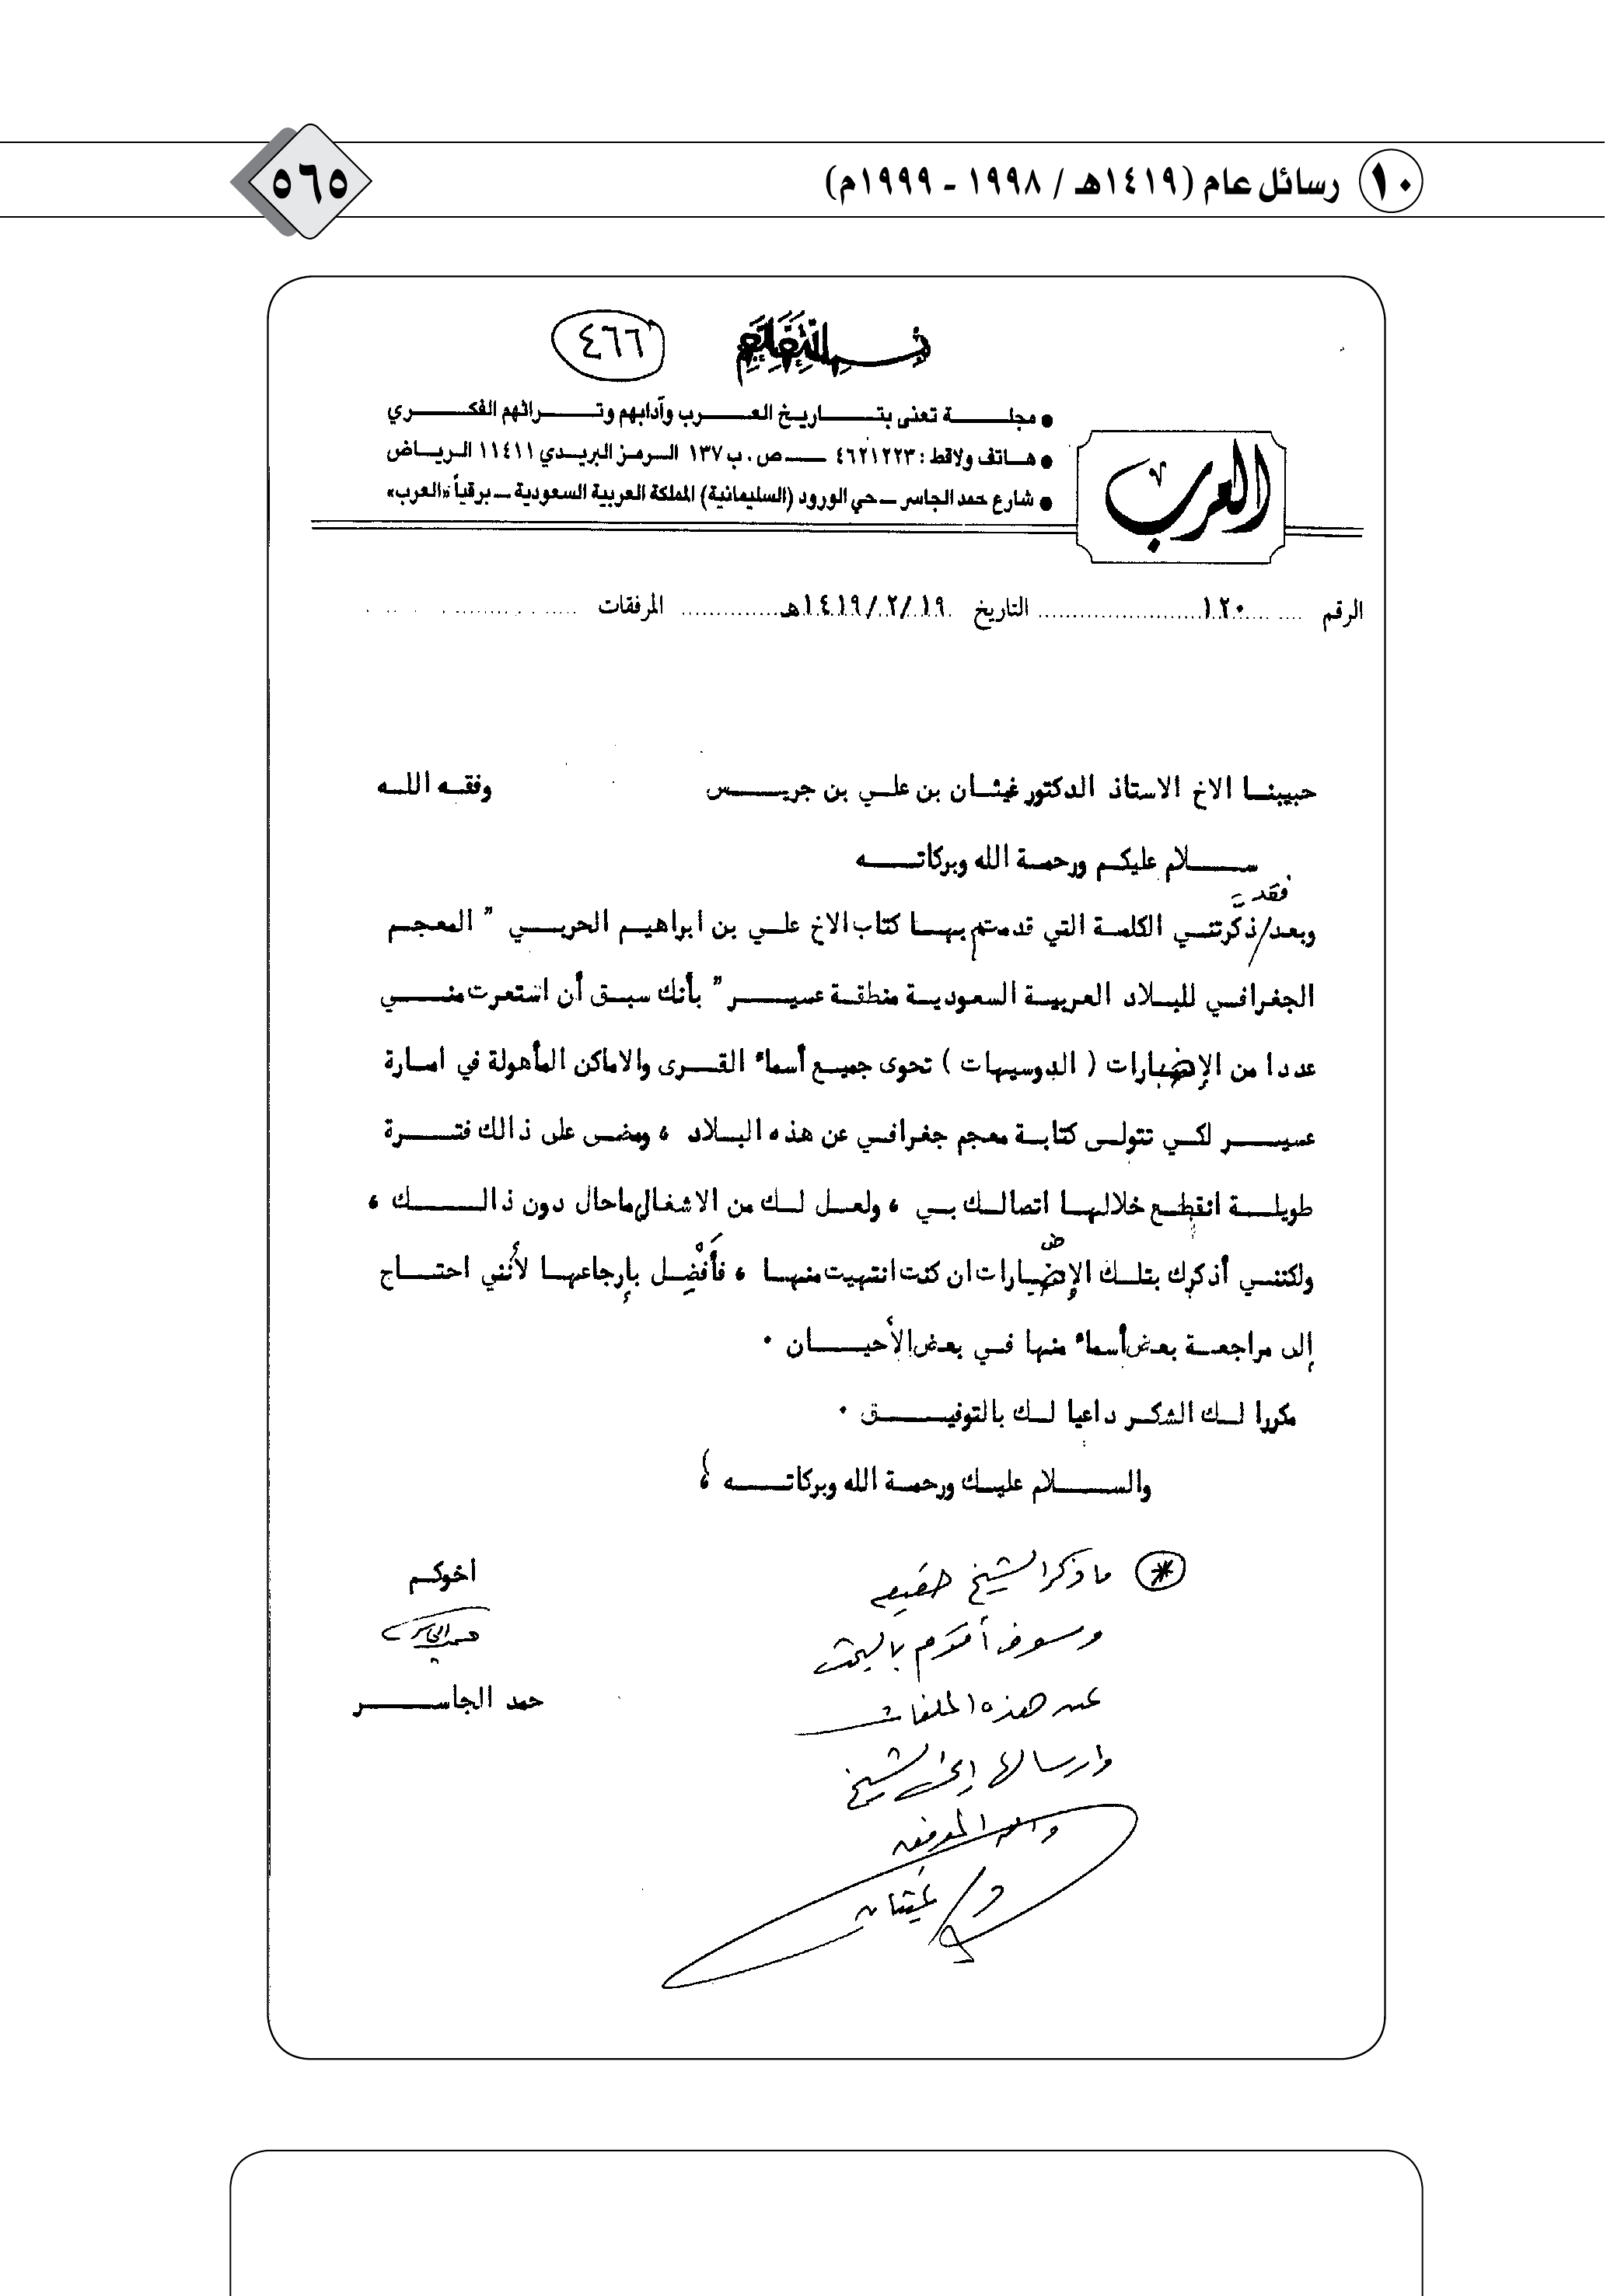 ١٠ رسائل عام (١٤١٩هـ / ١٩٩٨ - ١٩٩٩م)
٥٦٥
٤٦٦
• مجلة تعنى بتاريخ العرب وآدابهم وتراثهم الفكري
• هاتف ولاقط : ٤٦٢١٢٢٣ — ص . ب ١٣٧ الرمز البريدي ١١٤١١ الرياض
• شارع حمد الجاسر — حي الورود (السليمانية) المملكة العربية السعودية — برقياً «العرب»
العرب
الرقم ١٢٠ التاريخ ١٤١٩/٢/١٩هـ المرفقات
حبيبنا الاخ الاستاذ الدكتور غيثان بن علي بن جريس وفقه الله
سلام عليكم ورحمة الله وبركاته
وبعد/ فقد ذكرتني الكلمة التي قدمتم بها كتاب الاخ علي بن ابراهيم الحربي " المعجم
الجغرافي للبلاد العربية السعودية منطقة عسير " بأنك سبق أن استعرت مني
عددا من الإضبارات ( الدوسيهات ) تحوى جميع أسماء القرى والاماكن المأهولة في امارة
عسير لكي تتولى كتابة معجم جغرافي عن هذه البلاد ، ومضى على ذالك فترة
طويلة انقطع خلالها اتصالك بي ، ولعل لك من الاشغال ماحال دون ذالك ،
ولكنني أذكرك بتلك الإضبارات ان كنت انتهيت منها ، فأَفْضِل بإرجاعها لأنني احتاج
إلى مراجعة بعض أسماء منها في بعض الأحيان .
مكررا لك الشكر داعيا لك بالتوفيق .
والسلام عليك ورحمة الله وبركاته ،
اخوكم
حمد الجاسر
حمد الجاسر
* ما ذكر الشيخ حقيقه
وسوف أقوم بالبحث
عن هذه الملفات
وارسالها إلى الشيخ
والله الموفق
د/ غيثان